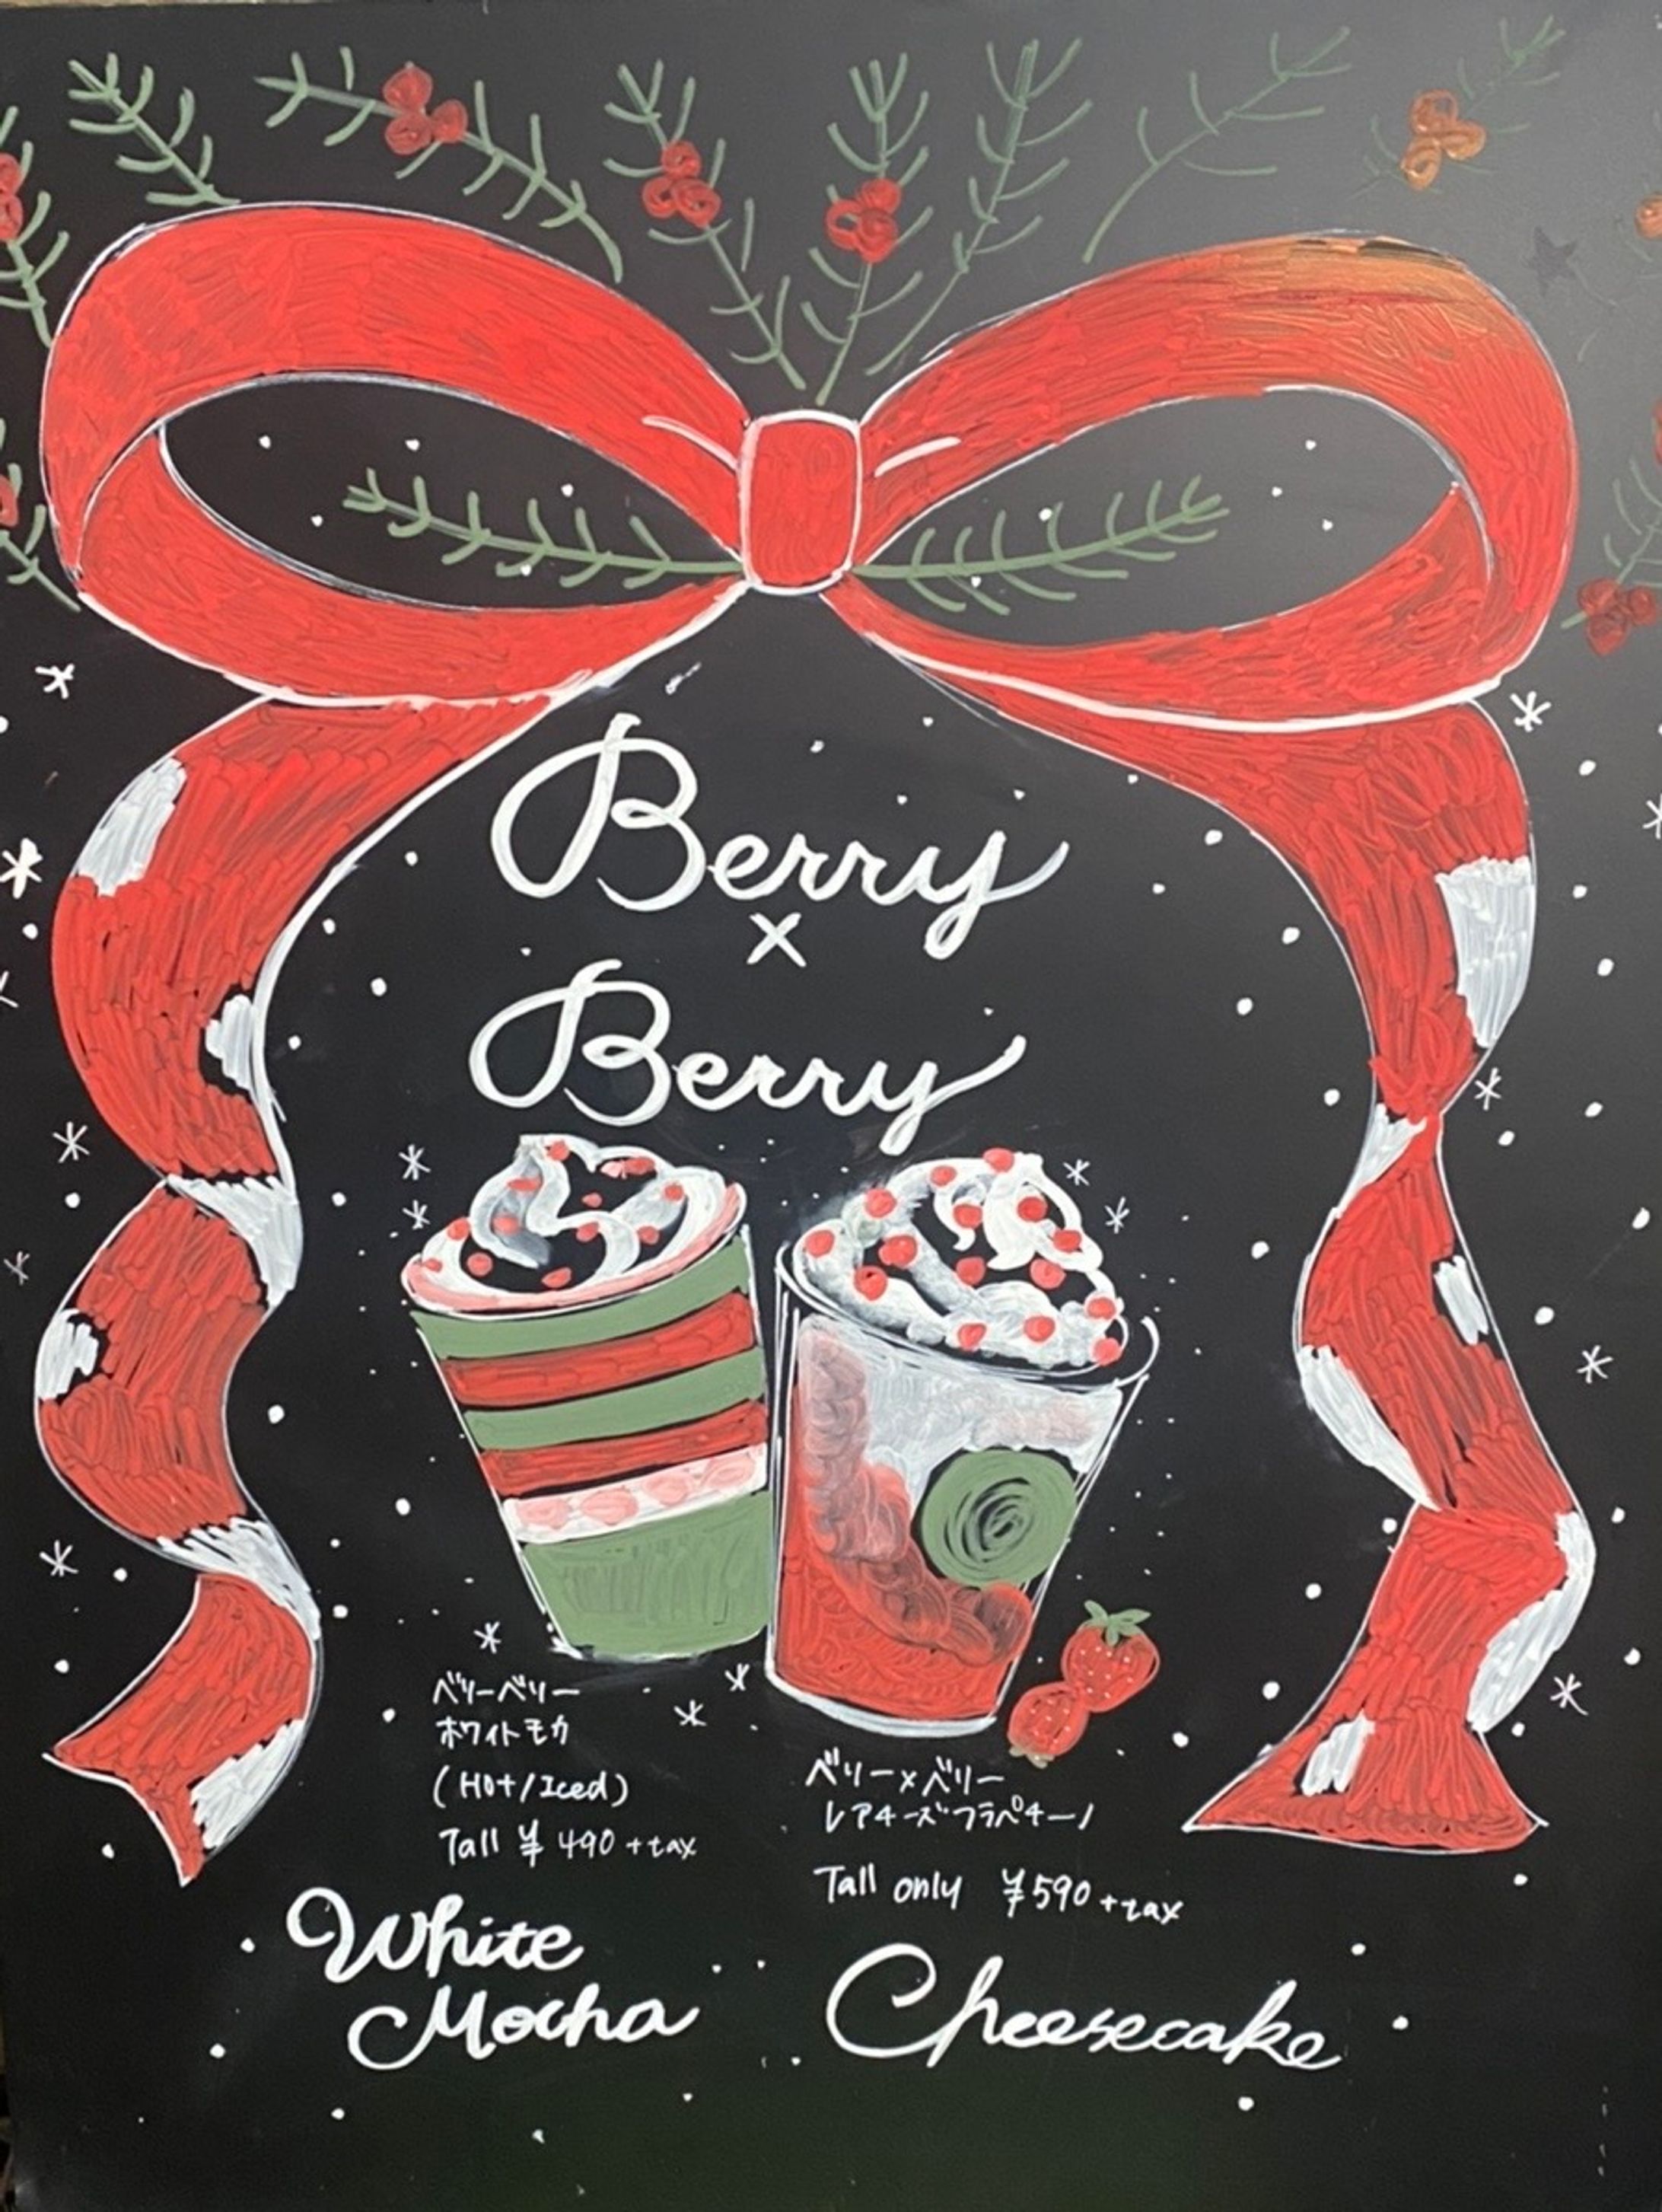 Berry
×
Berry
ベリーベリー
ホワイトモカ
(Hot/Iced)
Tall ¥490+tax
ベリー×ベリー
レアチーズフラペチーノ
Tall only ¥590+tax
White
Mocha
Cheesecake